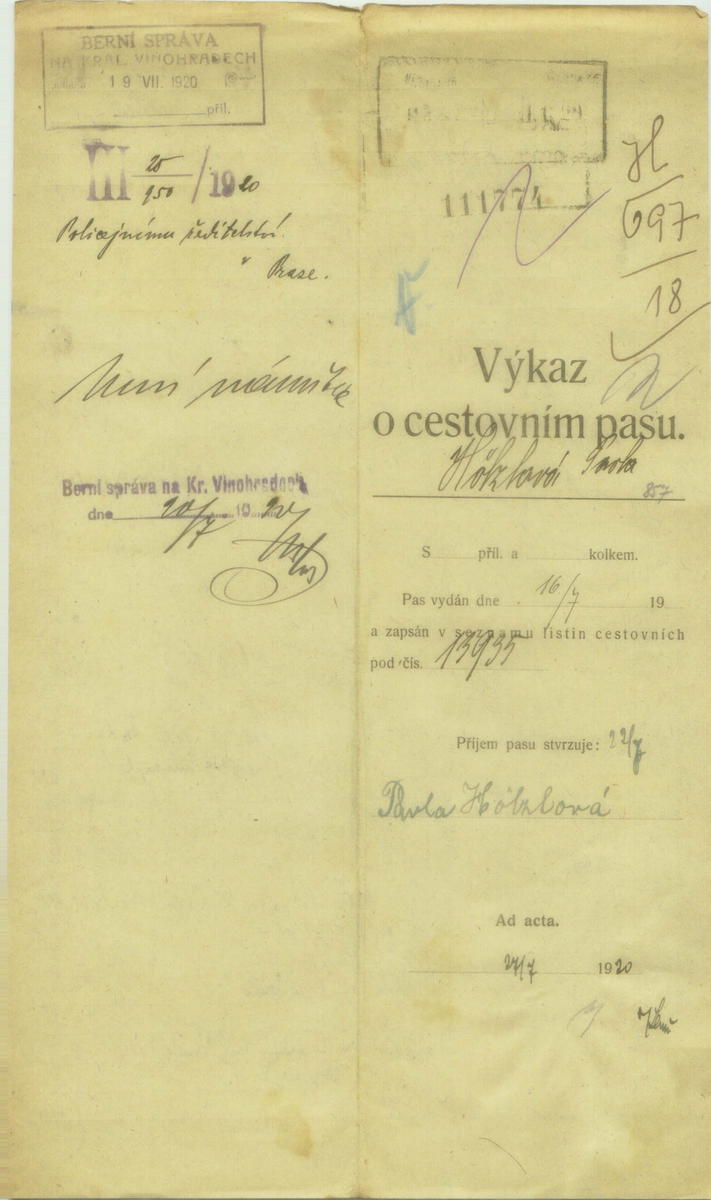 BERNÍ SPRÁVA
NA KRÁL. VINOHRADECH
19 VII. 1920
příl.
III 25/950 / 1920
Policejnímu ředitelství
v Praze.
Není námitek
Berní správa na Kr. Vinohradech
dne 20/7 1920
111774
H
697
18
Výkaz
o cestovním pasu.
Hölzlová Pavla
857
S příl. a kolkem.
Pas vydán dne 16/7 19
a zapsán v seznamu listin cestovních
pod čís. 13935
Příjem pasu stvrzuje: 22/7
Pavla Hölzlová
Ad acta.
27/7 1920